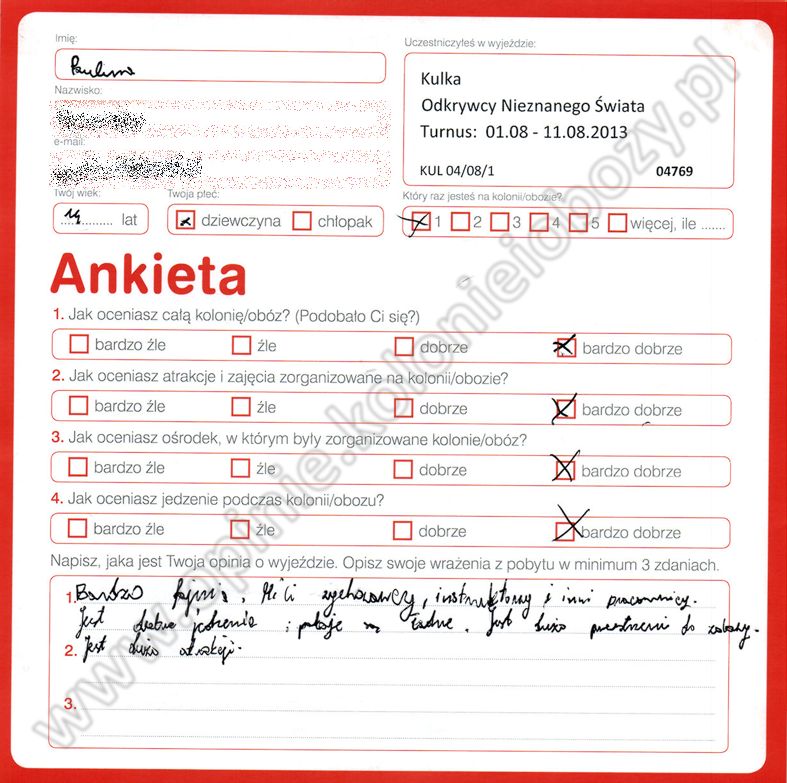 Imię:
Paulina
Uczestniczyłeś w wyjeździe:
Kulka
Odkrywcy Nieznanego Świata
Turnus: 01.08 - 11.08.2013
KUL 04/08/1 04769
Nazwisko:
e-mail:
Twój wiek:
14 lat
Twoja płeć:
dziewczyna chłopak
Który raz jesteś na kolonii/obozie?
1 2 3 4 5 więcej, ile .......
Ankieta
1. Jak oceniasz całą kolonię/obóz? (Podobało Ci się?)
bardzo źle źle dobrze bardzo dobrze
2. Jak oceniasz atrakcje i zajęcia zorganizowane na kolonii/obozie?
bardzo źle źle dobrze bardzo dobrze
3. Jak oceniasz ośrodek, w którym były zorganizowane kolonie/obóz?
bardzo źle źle dobrze bardzo dobrze
4. Jak oceniasz jedzenie podczas kolonii/obozu?
bardzo źle źle dobrze bardzo dobrze
Napisz, jaka jest Twoja opinia o wyjeździe. Opisz swoje wrażenia z pobytu w minimum 3 zdaniach.
1. Bardzo fajnie. Mili wychowawcy, instruktorzy i inni pracownicy.
Jest dobre jedzenie i pokoje są ładne. Jest dużo przestrzeni do zabawy.
2. Jest dużo atrakcji.
3.
www.opinie.kolonieiobozy.pl